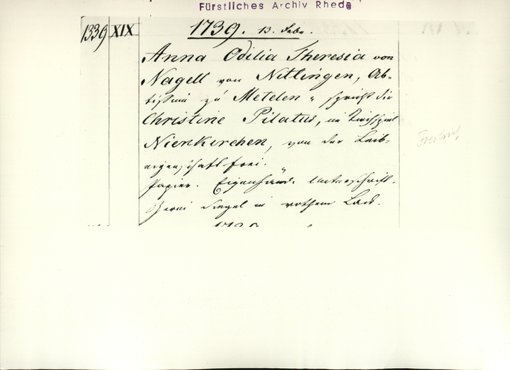 Fürstliches Archiv Rhede
1339 XIX. 1739. 13. Febr.
Anna Odilia Theresia von
Nagell von Nettlingen, Ab-
tissin zu Metelen, spricht die
Christine Pilatus, im Kirchspiel
Nienkirchen, von der Leib-
eigenschaft frei.
Papier. Eigenhänd. Unterschrift.
Siegel in rothem Lack.